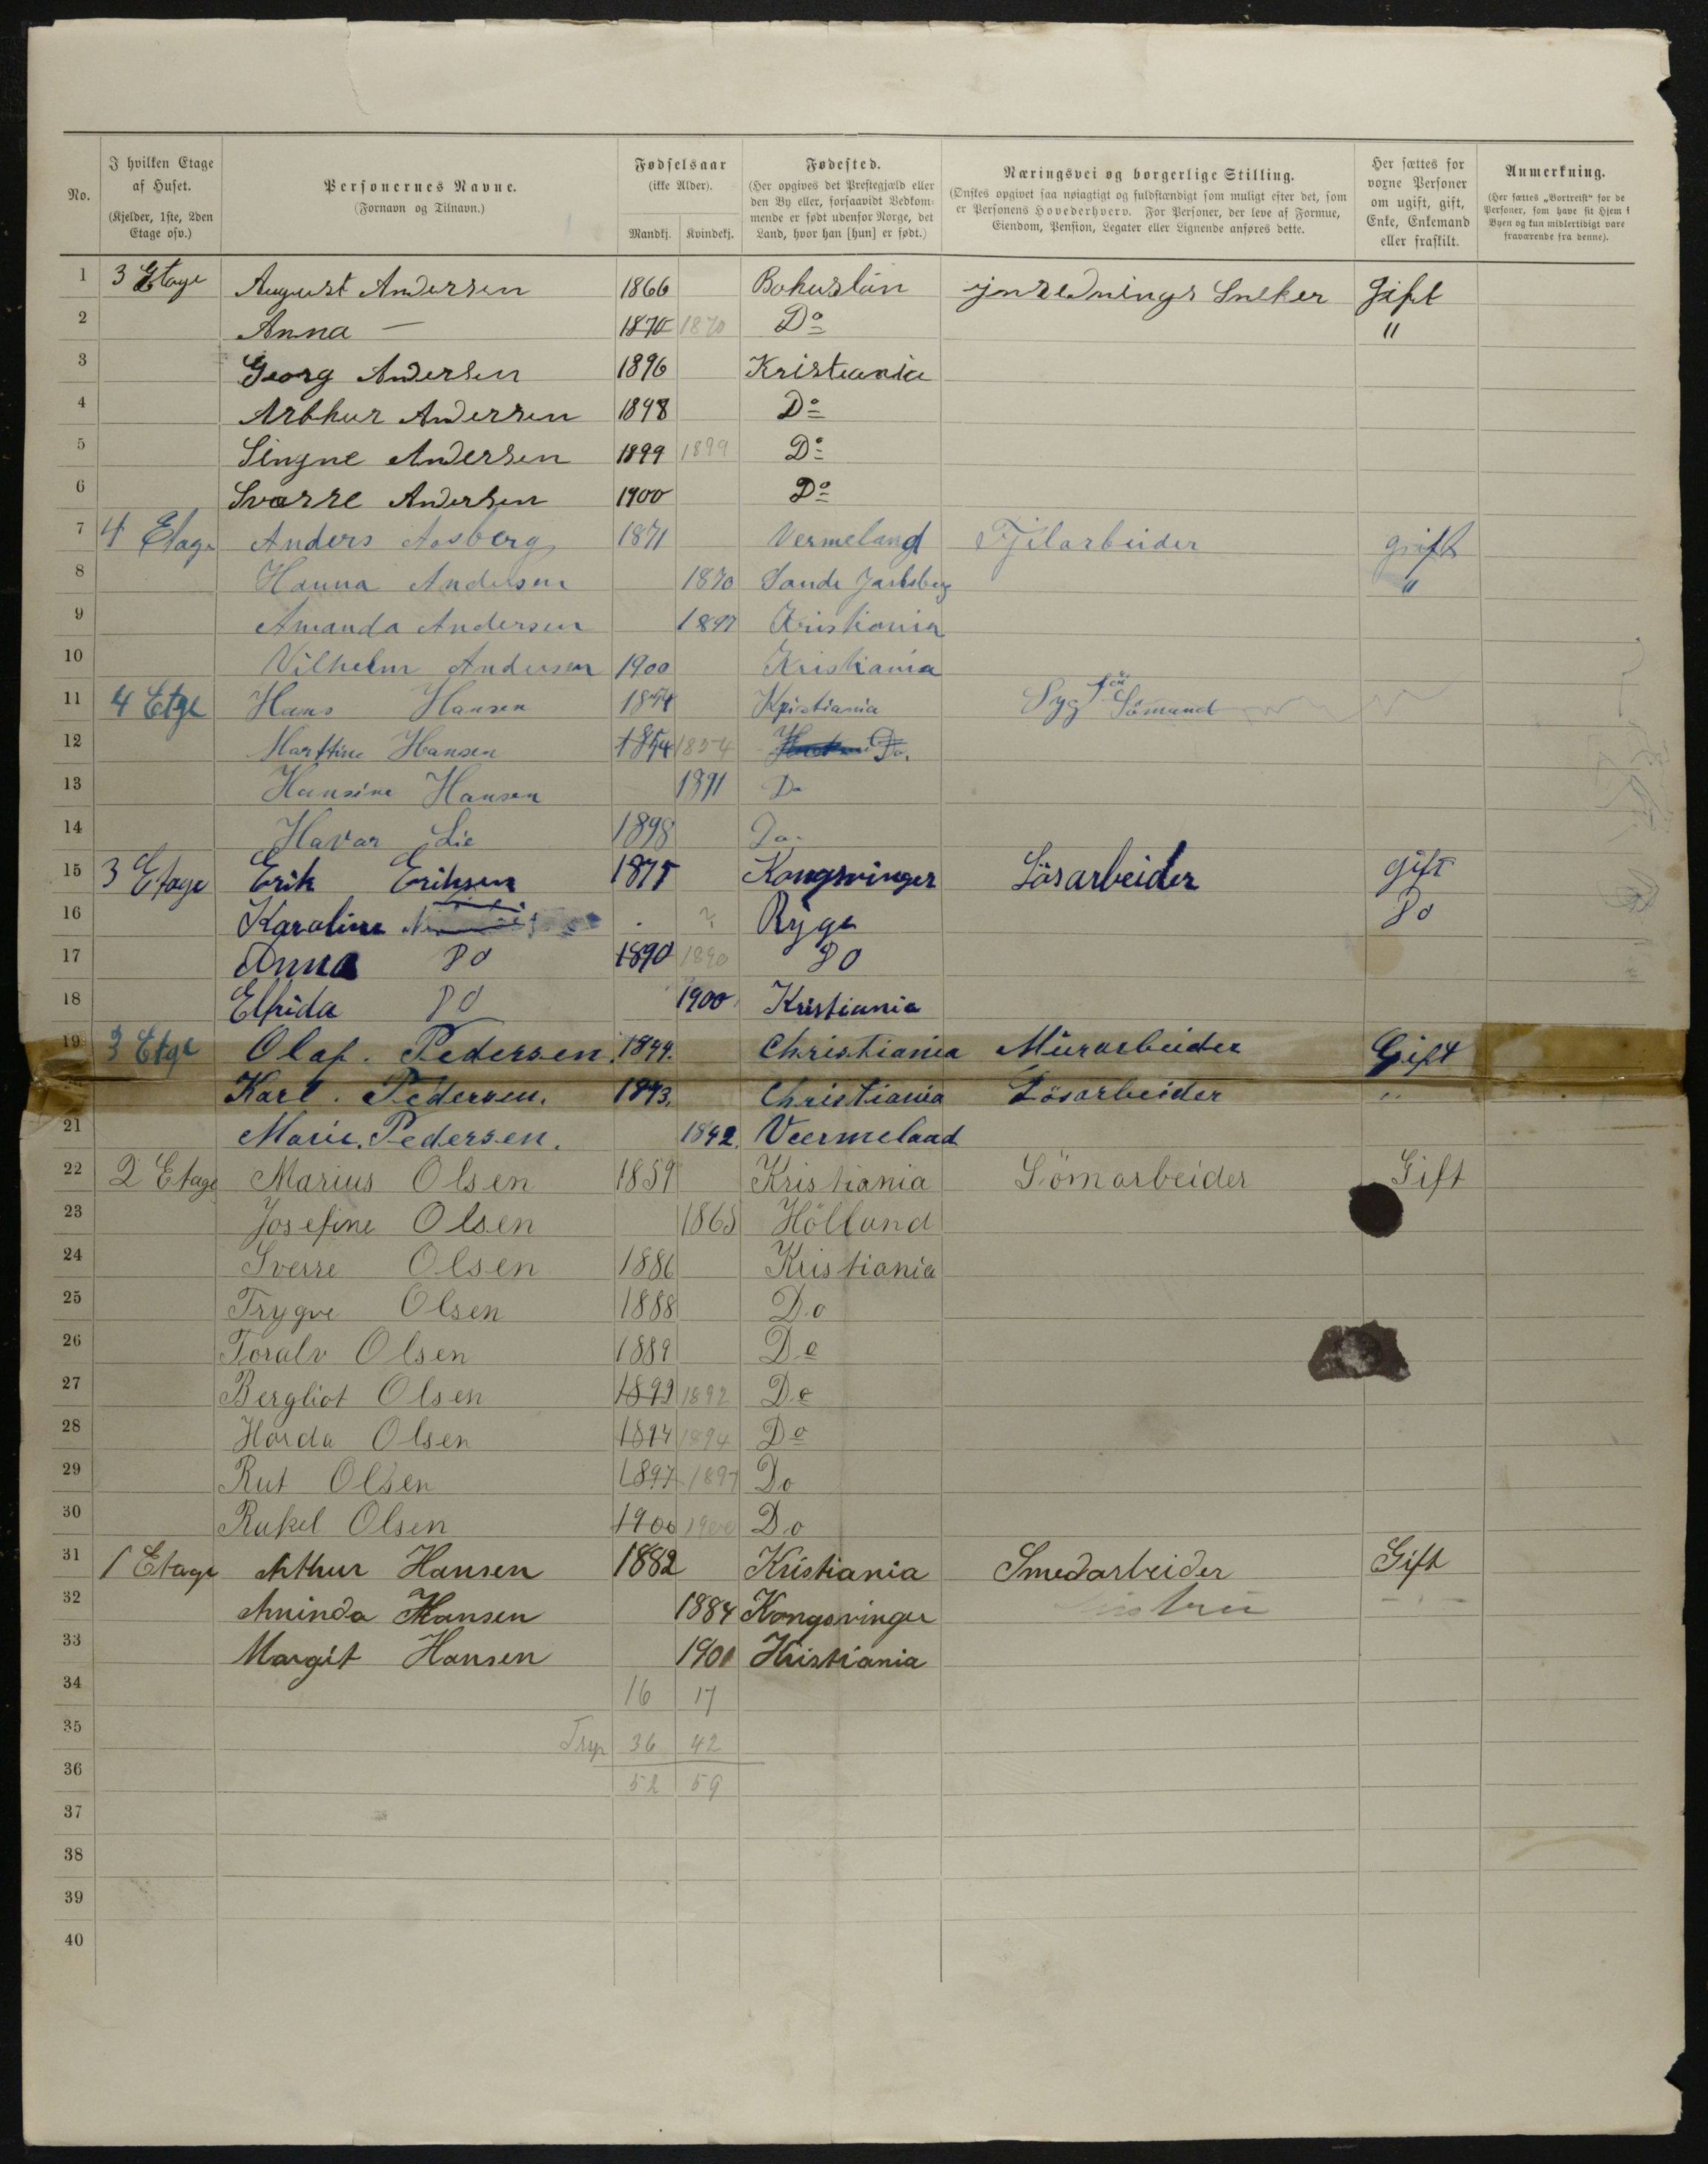 No.
I hvilken Etage af Huset. (Kjelder, 1ste, 2den Etage osv.)
Personernes Navne. (Fornavn og Tilnavn.)
Fødselsaar (ikke Alder). Mandkj. Kvindekj.
Fødested. (Her opgives det Prestegjæld eller den By eller, forsaavidt Vedkommende er født udenfor Norge, det Land, hvor han [hun] er født.)
Næringsvei og borgerlige Stilling. (Ønskes opgivet saa nøiagtigt og fuldstændigt som muligt efter det, som er Personens Hovederhverv. For Personer, der leve af Formue, Eiendom, Pension, Legater eller Lignende anføres dette.
Her sættes for voxne Personer om ugift, gift, Enke, Enkemand eller fraskilt.
Anmerkning. (Her sættes „Bortreist“ for de Personer, som have sit Hjem i Byen og kun midlertidigt vare fraværende fra denne).
1 3 Etage August Andersen 1866 Bohuslän jnrednings Sneker Gift
2 Anna — 1870 1870 Do "
3 Georg Andersen 1896 Kristiania
4 Arthur Andersen 1898 Do
5 Singne Andersen 1899 1899 Do
6 Svarre Andersen 1900 Do
7 4 Etage Anders Aasberg 1871 Vermeland Fjilarbeider gift
8 Hanna Andersen 1870 Sande Jarlsberg "
9 Amanda Andersen 1897 Kristiania
10 Vilhelm Andersen 1900 Kristiania
11 4 Etge Hans Hansen 1854 Kristiania Syg Sömand
12 Marthine Hansen 1854 1854 Do.
13 Hansine Hansen 1891 Do
14 Havar Lie 1898 Do.
15 3 Etage Erik Eriksen 1875 Kongsvinger Lösarbeider gift
16 Karoline ? Rygge Do
17 Anna Do 1890 1890 Do
18 Elfrida Do 1900 Kristiania
19 3 Etge Olaf. Pedersen. 1844. Christiania Mürarbeider Gift
Karl. Pedersen. 1873. Christiania Lösarbeider "
21 Marie. Pedersen. 1842. Veermeland
22 2 Etage Marius Olsen 1859 Kristiania Sömarbeider Gift
23 Josefine Olsen 1868 Hölland
24 Sverre Olsen 1886 Kristiania
25 Trygve Olsen 1888 Do
26 Toralv Olsen 1889 Do
27 Bergliot Olsen 1892 1892 Do
28 Horda Olsen 1894 1894 Do
29 Rut Olsen 1897 1897 Do
30 Rakel Olsen 1900 1900 Do
31 1 Etage Arthur Hansen 1882 Kristiania Smedarbeider Gift
32 Aminda Hansen 1884 Kongsvinger Hustru - " -
33 Margit Hansen 1901 Kristiania
34 16 17
35 36 42
36 52 59
37
38
39
40